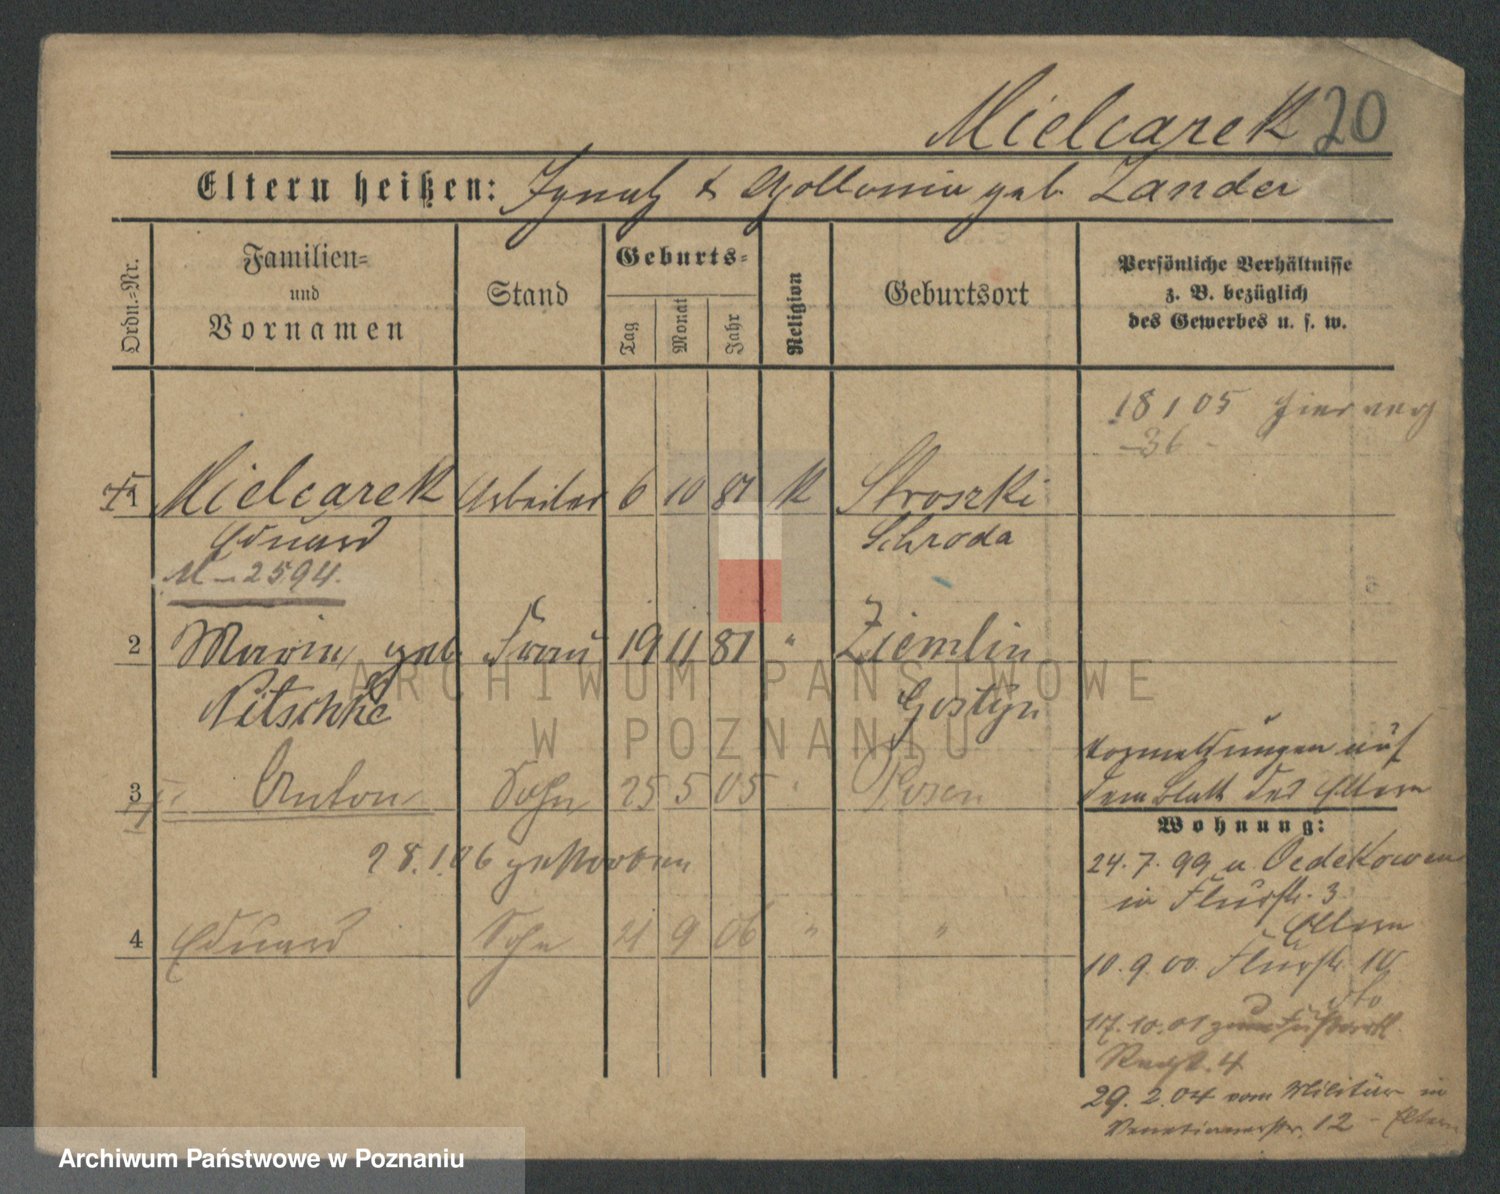 Mielcarek 20
Eltern heißen: Ignatz & Apollonia geb. Zander
Ordn.-Nr.
Familien-
und
Vornamen
Stand
Geburts-
Tag
Monat
Jahr
Religion
Geburtsort
Persönliche Verhältnisse
z. B. bezüglich
des Gewerbes u. s. w.
18 1 05
-36-
1 Mielcarek Arbeiter 6 10 81 K Stroszki
Eduard Schroda
M-2594.
2 Maria, geb. Frau 19 11 81 " Ziemlin
Nitschke Gostyn
3 Anton Sohn 25 5 05 " Posen
auf
dem Blatt der Eltern
Wohnung:
28.1.06 gestorben
24.7.99 u
in Flurstr. 3
Eltern
4 Eduard Sohn 21 9 06 " "
10.9.00. Flurstr.
17.10.01
29.2.04 vom Militär in
Venetianerstr. 12 - Eltern
ARCHIWUM PAŃSTWOWE
W POZNANIU
Archiwum Państwowe w Poznaniu